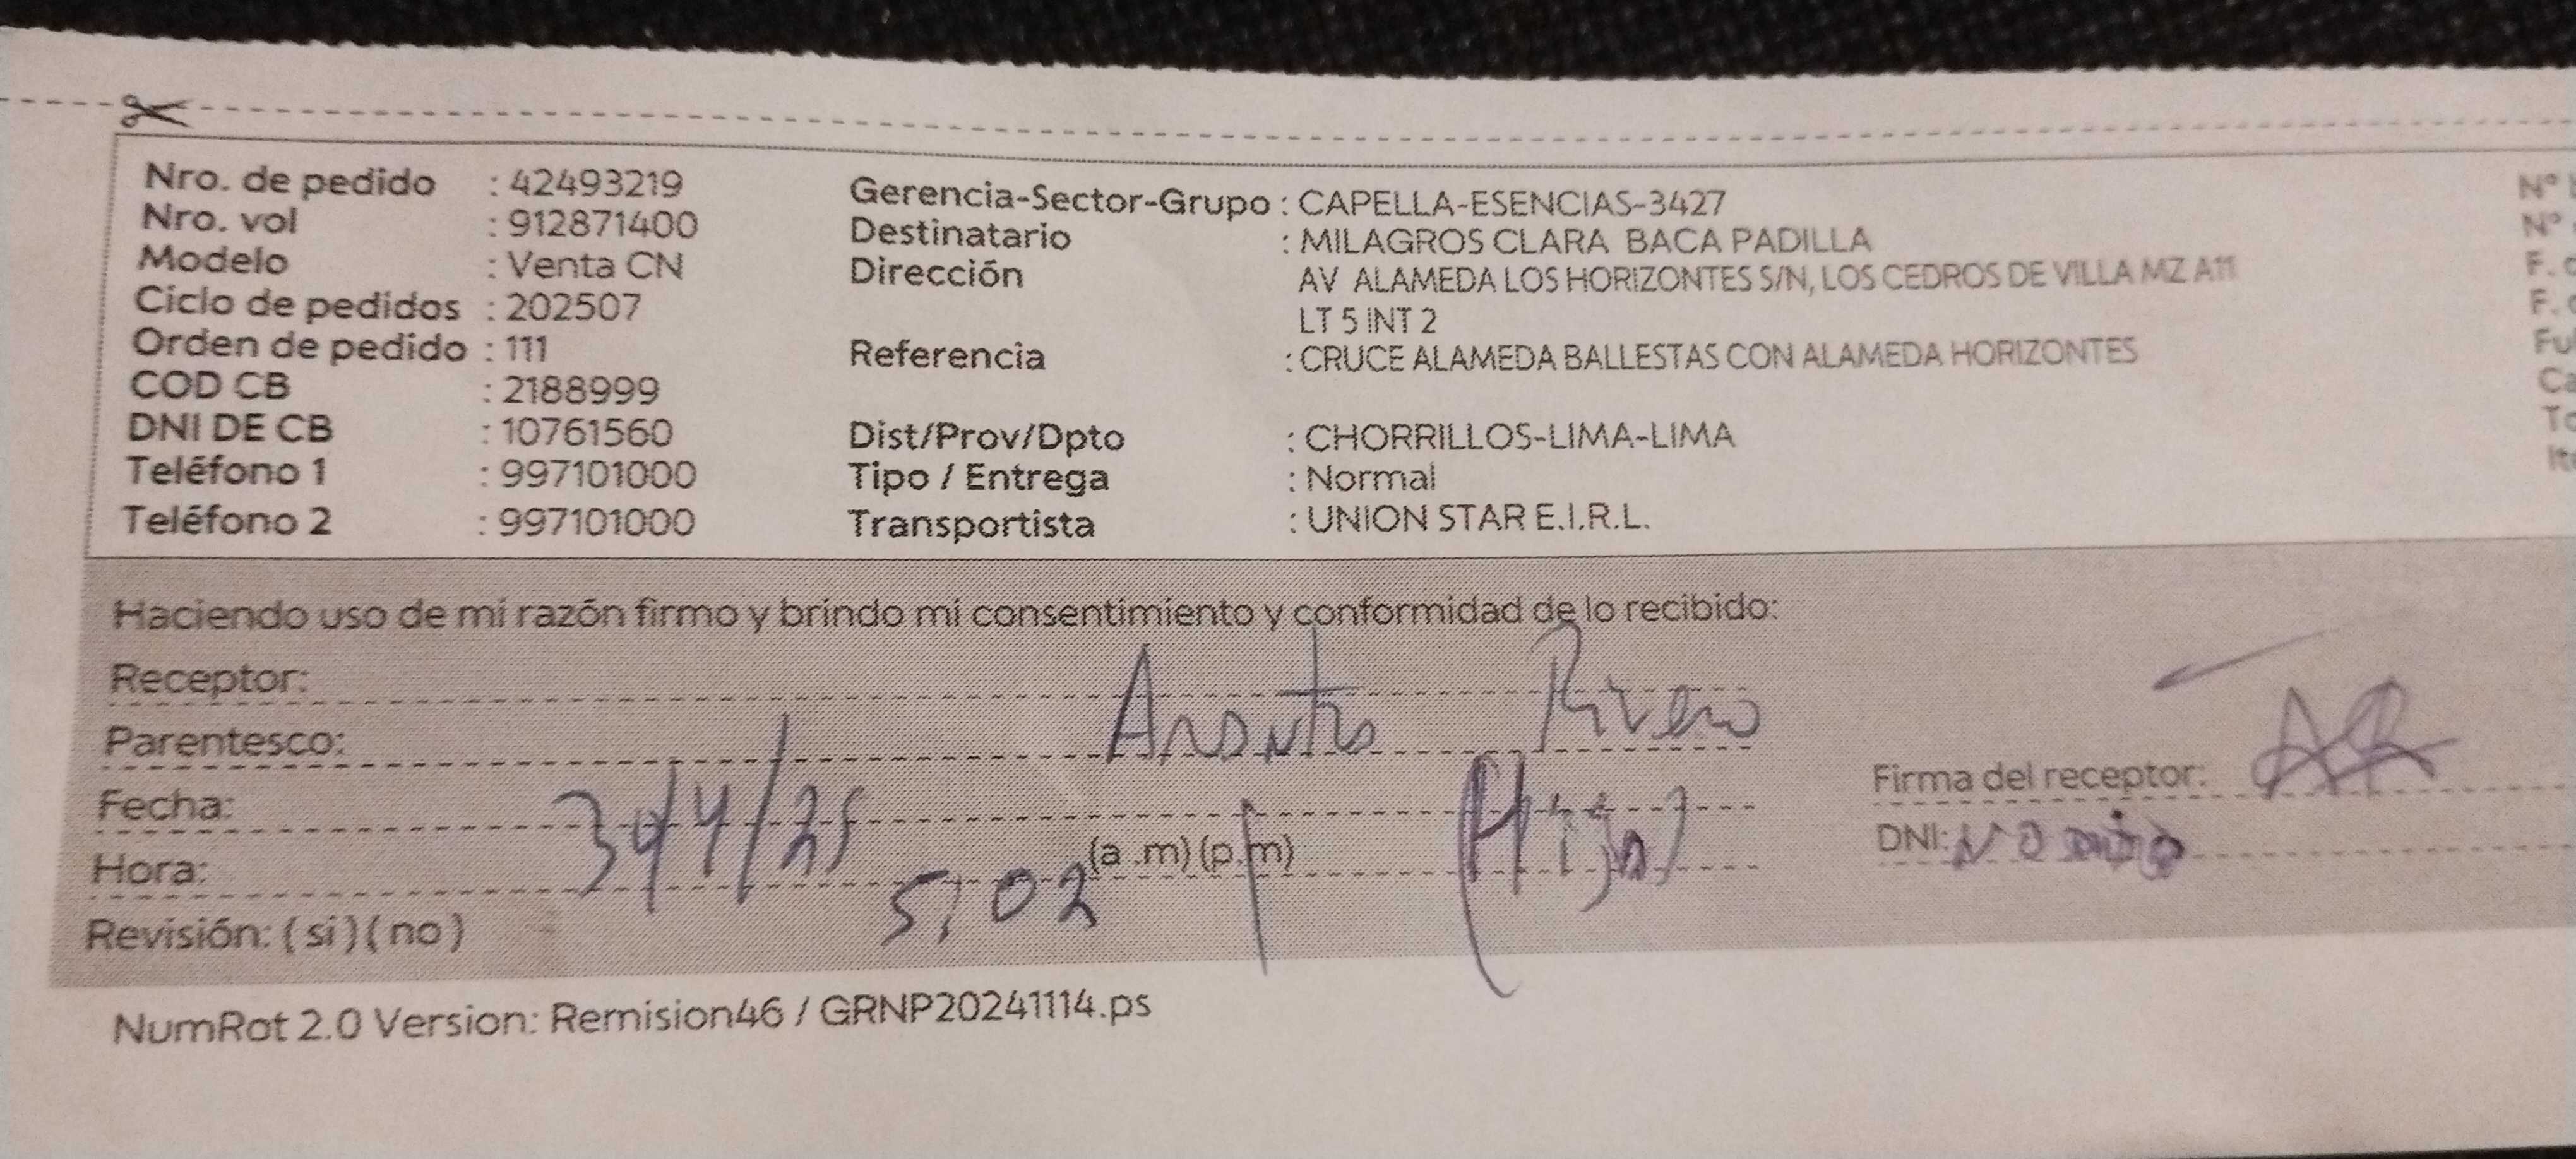 Nro. de pedido : 42493219
Nro. vol : 912871400
Modelo : Venta CN
Ciclo de pedidos : 202507
Orden de pedido : 111
COD CB : 2188999
DNI DE CB : 10761560
Teléfono 1 : 997101000
Teléfono 2 : 997101000
Gerencia-Sector-Grupo : CAPELLA-ESENCIAS-3427
Destinatario : MILAGROS CLARA BACA PADILLA
Dirección AV ALAMEDA LOS HORIZONTES S/N, LOS CEDROS DE VILLA MZ A11
LT 5 INT 2
Referencia : CRUCE ALAMEDA BALLESTAS CON ALAMEDA HORIZONTES
Dist/Prov/Dpto : CHORRILLOS-LIMA-LIMA
Tipo / Entrega : Normal
Transportista : UNION STAR E.I.R.L.
Nº
Nº
F.
F.
Haciendo uso de mi razón firmo y brindo mi consentimiento y conformidad de lo recibido:
Receptor:
Parentesco:
Fecha: 30/4/25
Hora: 5:02 (a .m) (p.m)
(Hijo)
Revisión: ( si ) ( no )
Firma del receptor: AR
DNI:
NumRot 2.0 Version: Remision46 / GRNP20241114.ps